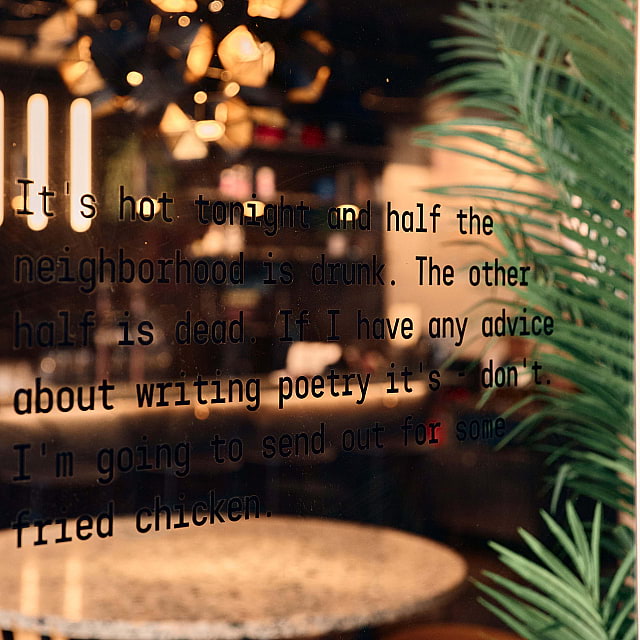 It's hot tonight and half the
neighborhood is drunk. The other
half is dead. If I have any advice
about writing poetry it's - don't.
I'm going to send out for some
fried chicken.